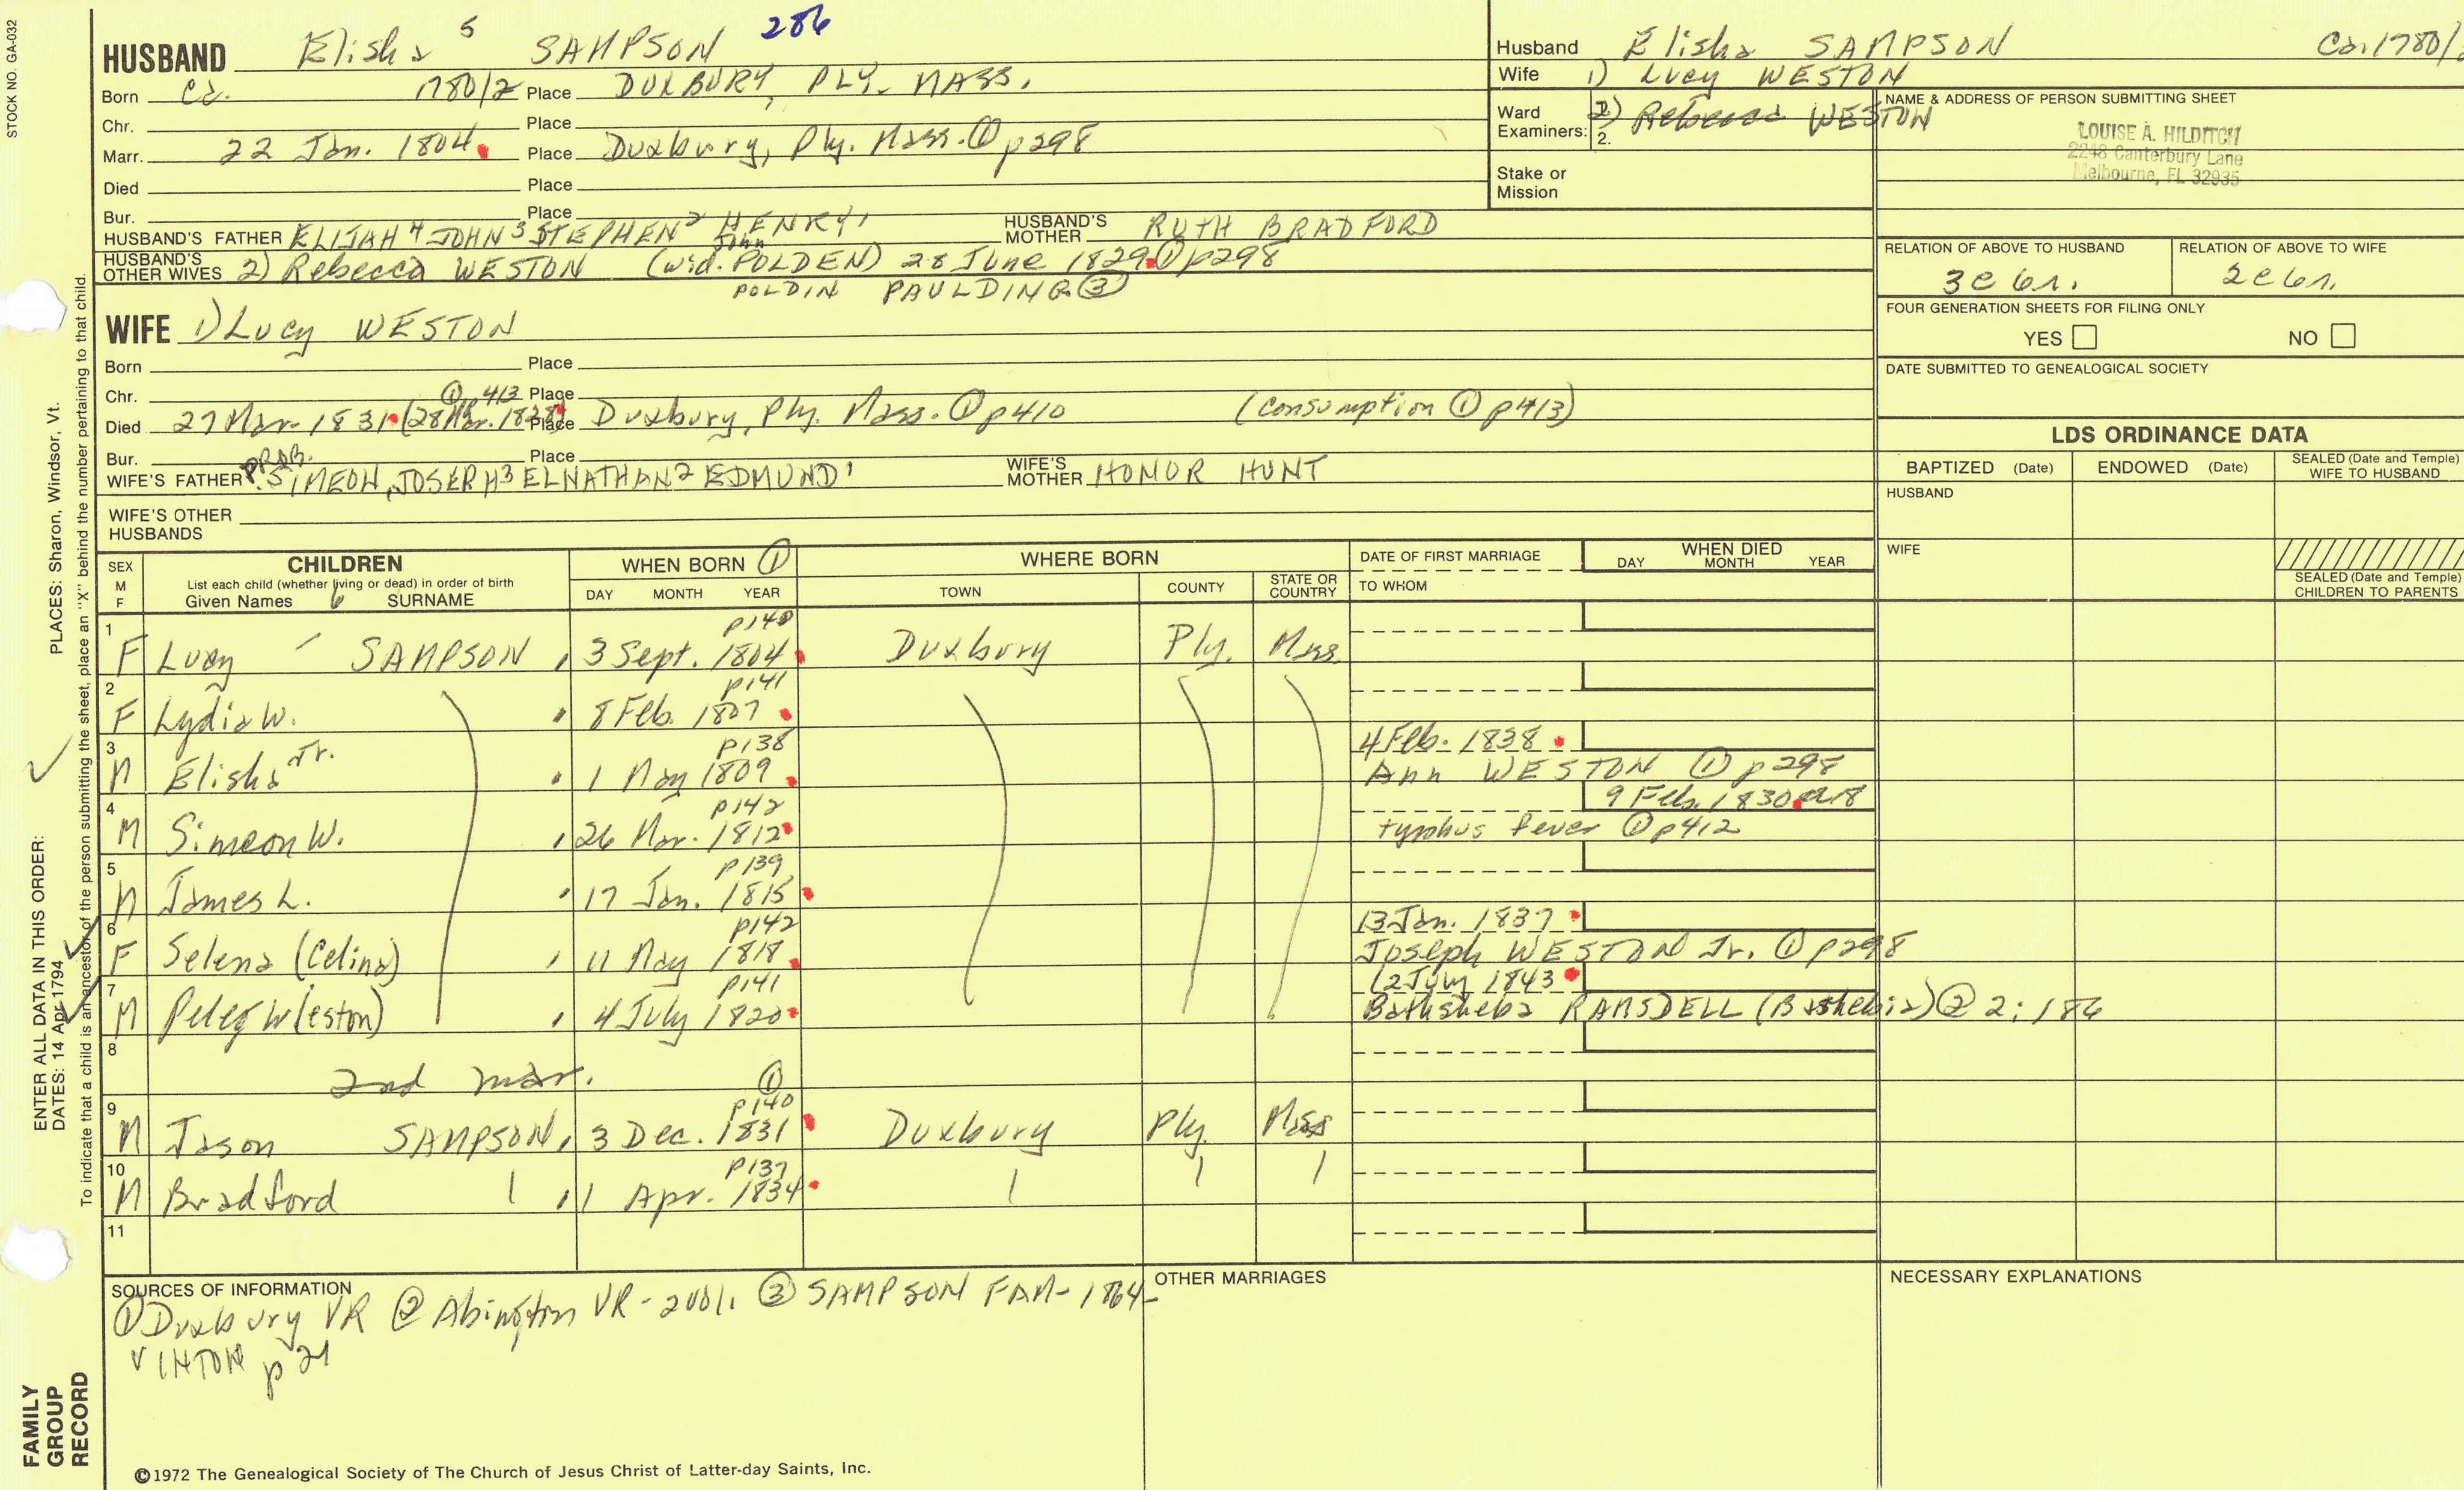 STOCK NO. GA-032
HUSBAND Elisha 5 SAMPSON 286
Born ca. 1780/2 Place DUXBURY, PLY. MASS.
Chr. Place
Marr. 22 Jan. 1804 Place Duxbury, Ply. Mass. ① p298
Died Place
Bur. Place
HUSBAND'S FATHER ELIJAH 4 JOHN 3 STEPHEN 2 HENRY 1 HUSBAND'S MOTHER RUTH BRADFORD
John
HUSBAND'S OTHER WIVES 2) Rebecca WESTON (wid. POLDEN) 28 June 1829 ① p298
POLDIN PAULDING ③
WIFE 1) Lucy WESTON
Born Place
Chr. ① p 413 Place
Died 27 Mar. 1831 (28 Mar. 1828) Place Duxbury, Ply. Mass. ① p410 (Consumption ① p413)
Bur. Place
PROB.
WIFE'S FATHER SIMEON, JOSEPH 3 ELNATHAN 2 EDMUND 1 WIFE'S MOTHER HONOR HUNT
WIFE'S OTHER HUSBANDS
Husband Elisha SAMPSON Ca. 1780/
Wife 1) Lucy WESTON
Ward 2) Rebecca WESTON
Examiners: 2.
Stake or Mission
NAME & ADDRESS OF PERSON SUBMITTING SHEET
LOUISE A. HILDITCH
2248 Canterbury Lane
Melbourne, FL 32935
RELATION OF ABOVE TO HUSBAND RELATION OF ABOVE TO WIFE
3c 6r. 2c 6r.
FOUR GENERATION SHEETS FOR FILING ONLY
YES NO
DATE SUBMITTED TO GENEALOGICAL SOCIETY
LDS ORDINANCE DATA
BAPTIZED (Date) ENDOWED (Date) SEALED (Date and Temple) WIFE TO HUSBAND
HUSBAND
WIFE
SEALED (Date and Temple) CHILDREN TO PARENTS
SEX M F CHILDREN WHEN BORN ① WHERE BORN DATE OF FIRST MARRIAGE WHEN DIED
List each child (whether living or dead) in order of birth
Given Names 6 SURNAME DAY MONTH YEAR TOWN COUNTY STATE OR COUNTRY TO WHOM DAY MONTH YEAR
1 p140
F Lucy SAMPSON 3 Sept. 1804 Duxbury Ply. Mass.
2 p141
F Lydia W. 8 Feb. 1807
3 p138 4 Feb. 1838
M Elisha Jr. 1 May 1809 Ann WESTON ① p298
4 p142 9 Feb. 1830 ae18
M Simeon W. 26 Mar. 1812 typhus fever ① p412
5 p139
M James L. 17 Jan. 1815
6 p142 13 Jan. 1837
F Selena (Celina) 11 May 1818 Joseph WESTON Jr. ① p298
7 p141 12 July 1843
M Peleg W(eston) 4 July 1820 Bathsheba RAMSDELL (Bathebia) ② 2:186
8
2nd mar. ①
9 p140
M Jason SAMPSON 3 Dec. 1831 Duxbury Ply. Mass
10 p137
M Bradford 1 Apr. 1834
11
SOURCES OF INFORMATION
① Duxbury VR ② Abington VR - 2vol. ③ SAMPSON FAM - 1864 -
VINTON p 21
OTHER MARRIAGES
NECESSARY EXPLANATIONS
©1972 The Genealogical Society of The Church of Jesus Christ of Latter-day Saints, Inc.
PLACES: Sharon, Windsor, Vt.
ENTER ALL DATA IN THIS ORDER:
DATES: 14 Apr 1794
To indicate that a child is an ancestor of the person submitting the sheet, place an "X" behind the number pertaining to that child.
FAMILY GROUP RECORD